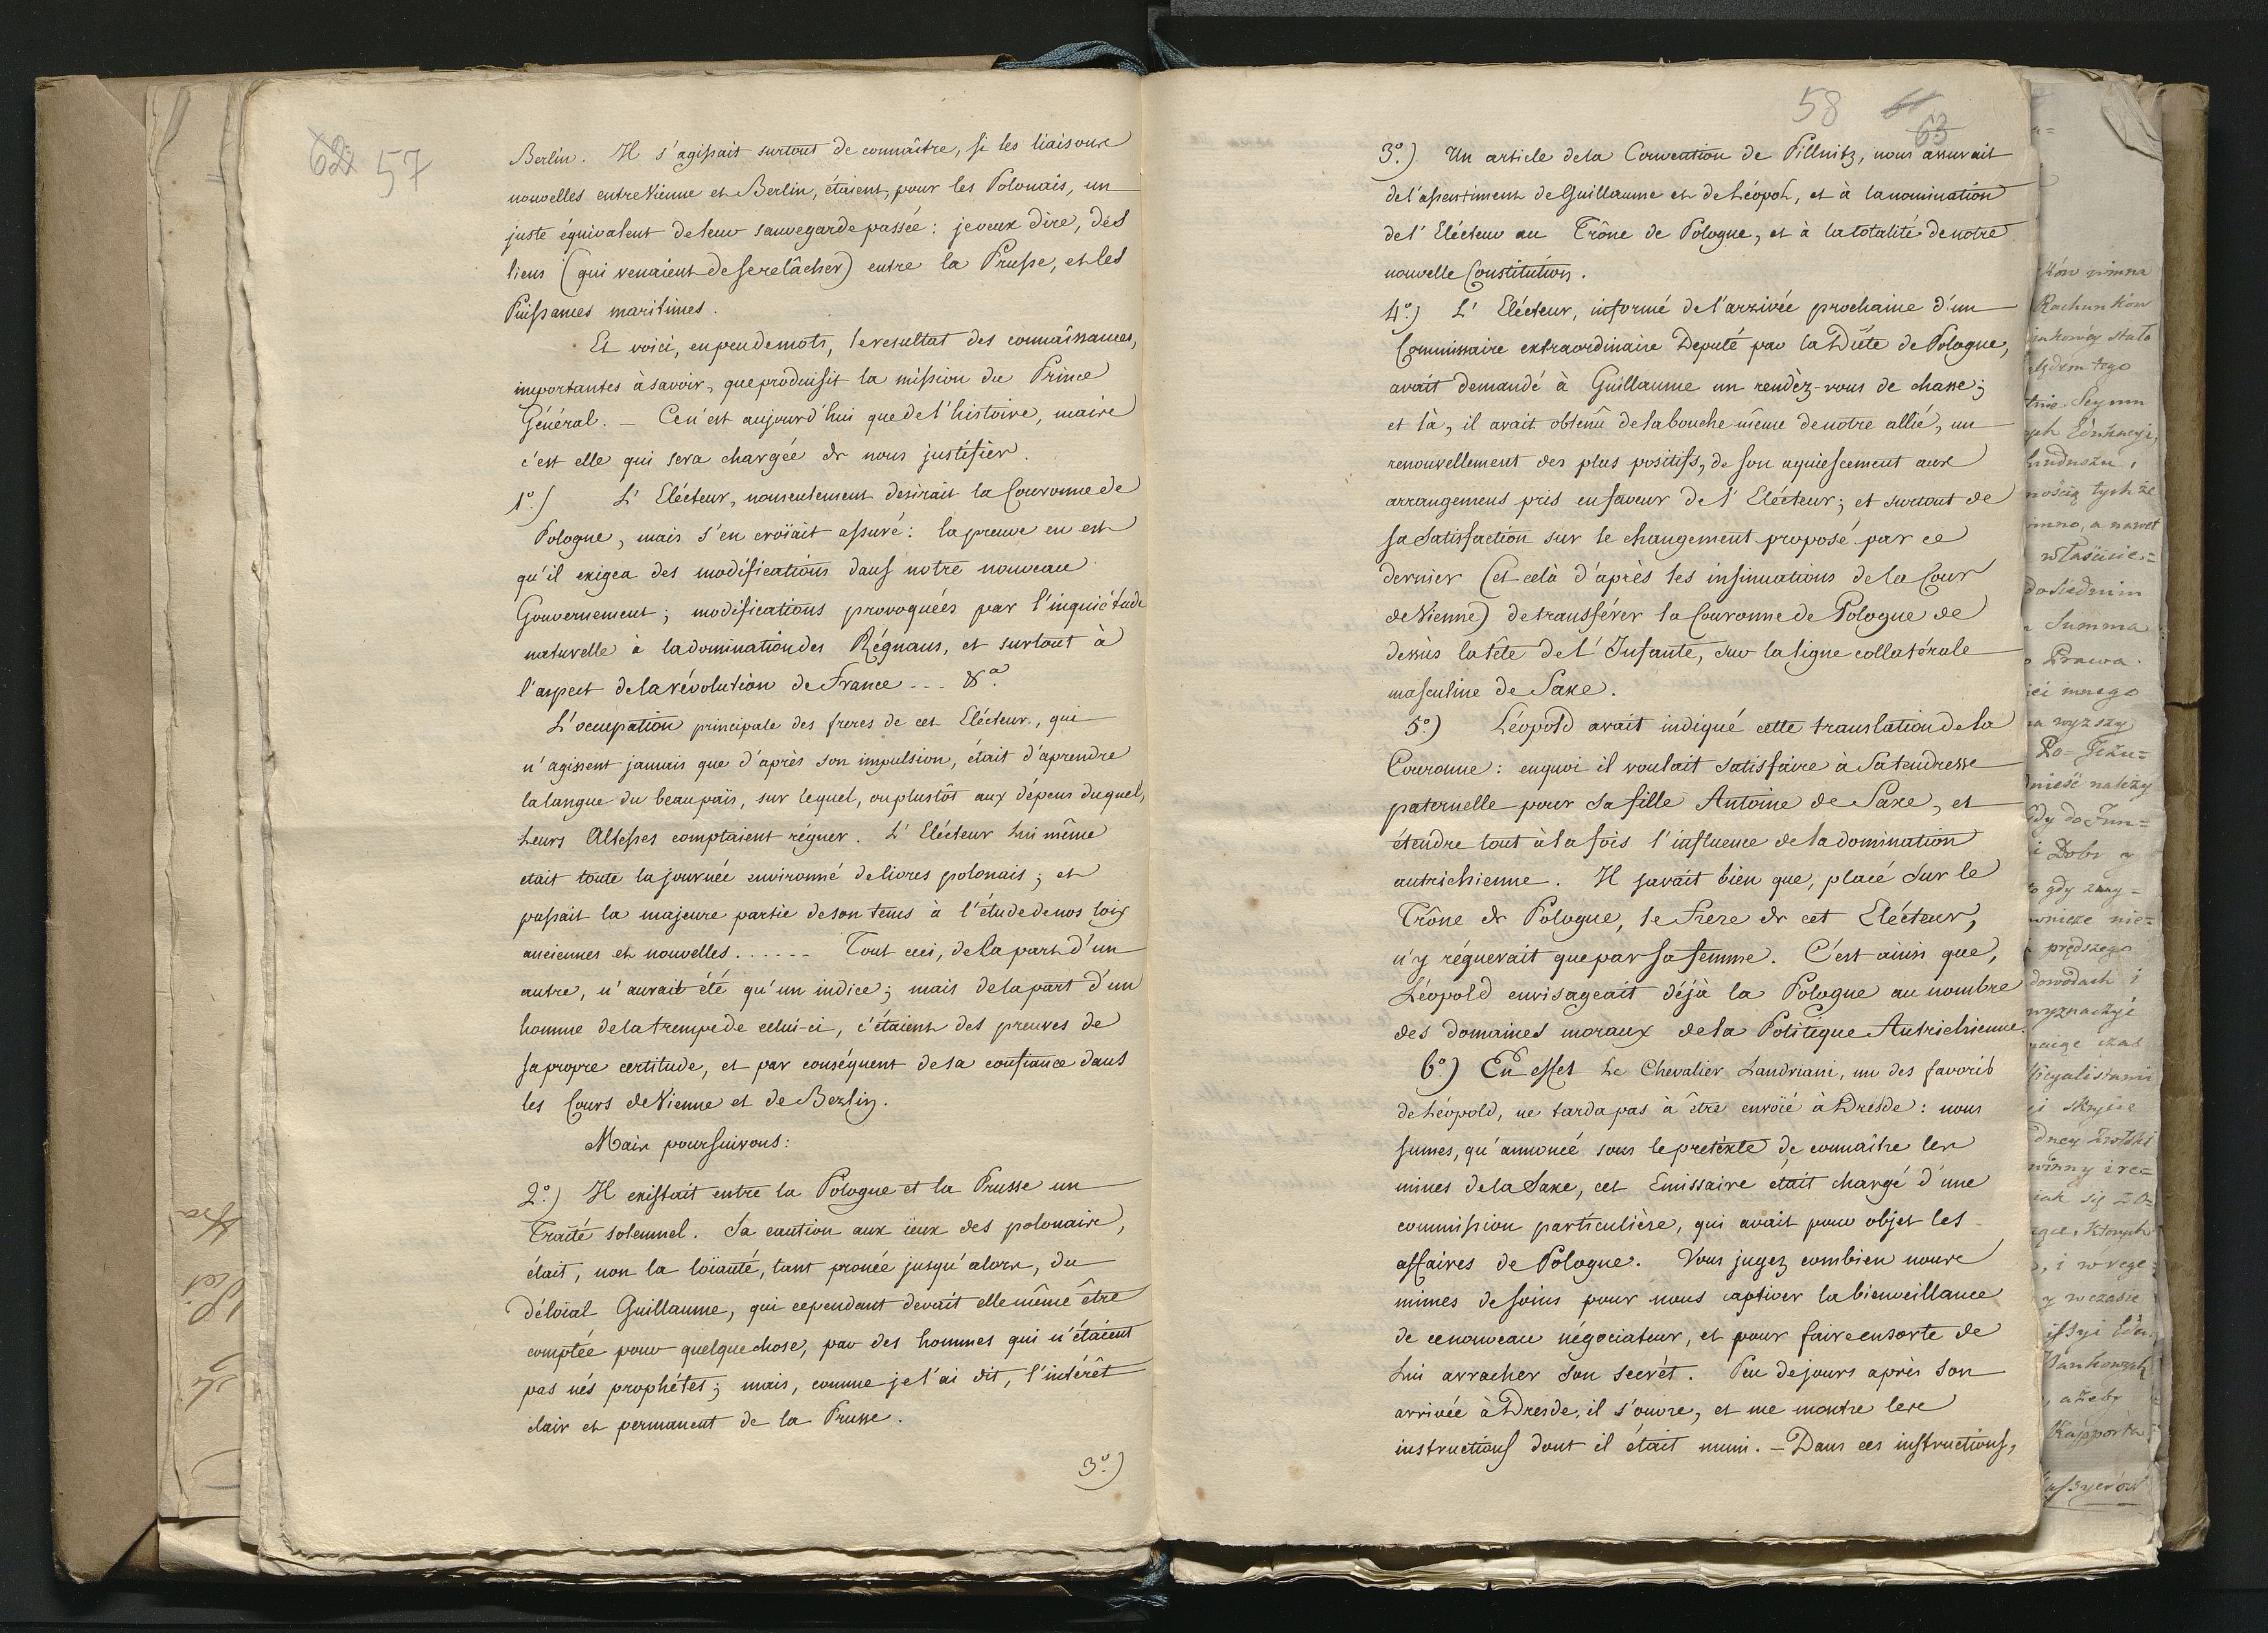 62 57
Berlin. Il s'agissait surtout de connaître, si les liaisons
nouvelles entre Vienne et Berlin, étaient, pour les Polonais, un
juste équivalent de leur sauvegarde passée: je veux dire, des
liens (qui venaient de se relâcher) entre la Prusse, et les
Puissances maritimes.
Et voici, en peu de mots, le resultat des connaîssances,
importantes à savoir, que produisit la mission du Prince
Général. — Ce n'est aujourd'hui que de l'histoire, mais
c'est elle qui sera chargée de nous justifier.
1º) L'Elécteur, nonseulement desirait la Couronne de
Pologne, mais s'en croïait assuré: la preuve en est
qu'il exigea des modifications dans notre nouveau
Gouvernement; modifications provoquées par l'inquiétude
naturelle à la domination des Régnans, et surtout à
l'aspect de la révolution de France --- &ª.
L'ocupation principale des freres de cet Elécteur, qui
n'agissent jamais que d'après son impulsion, était d'aprendre
la langue du beau païs, sur lequel, ou plustôt aux dépens duquel,
Leurs Altesses comptaient régner. L'Elécteur lui même
etait toute la journée environné de livres polonais; et
passait la majeure partie de son tems à l'étude de nos loix
anciennes et nouvelles...... Tout ceci, de la part d'un
autre, n'aurait été qu'un indice; mais de la part d'un
homme de la trempe de celui-ci, c'étaient des preuves de
sa propre certitude, et par conséquent de sa confiance dans
les Cours de Vienne et de Berlin.
Mais poursuivons:
2º) Il existait entre la Pologne et la Prusse un
Traité solemnel. Sa caution aux ïeux des polonais,
était, non la loïauté, tant pronée jusqu'alors, du
déloïal Guillaume, qui cependant devait elle même être
comptée pour quelque chose, par des hommes qui n'étaient
pas nés prophétes; mais, comme je l'ai dit, l'intérêt
clair et permanent de la Prusse.
3º)
58 61
63
3º) Un article de la Convention de Pillnitz, nous assurait
de l'assentiment de Guillaume et de Léopold, et à la nomination
de l'Elécteur au Trône de Pologne, et à la totalité de notre
nouvelle Constitution.
4º) L'Elécteur, informé de l'arrivée prochaine d'un
Commissaire extraordinaire Deputé par la Diéte de Pologne,
avait demandé à Guillaume un rendèz-vous de chasse;
et là, il avait obtenû de la bouche même de notre allié, un
renouvellement des plus positifs, de son aquiescement aux
arrangemens pris en faveur de l'Elécteur; et surtout de
sa Satisfaction sur le changement proposé par ce
dernier (et celà d'après les insinuations de la Cour
de Vienne) de transférer la Couronne de Pologne de
dessus la tête de l'Infante, sur la ligne collatérale
masculine de Saxe.
5º) Léopold avait indiqué cette translation de la
Couronne: en quoi il voulait satisfaire à Sa tendresse
paternelle pour Sa fille Antoine de Saxe, et
étendre tout à la fois l'influence de la domination
autrichienne. Il savait bien que, placé Sur le
Trône de Pologne, le Frere de cet Elécteur,
n'y régnerait que par sa femme. C'est ainsi que,
Léopold envisageait déjà la Pologne au nombre
des domaines moraux de la Politique Autrichienne.
6º) En effet Le Chevalier Landriani, un des favoris
de Léopold, ne tarda pas à être envoïé à Dresde: nous
sumes, qu'annoncé sous le pretéxte de connaître les
mines de la Saxe, cet Emissaire était chargé d'une
commission particulière, qui avait pour objet les
affaires de Pologne. Vous jugez combien nous
mimes de soins pour nous captiver la bienveillance
de ce nouveau négociateur, et pour faire ensorte de
Lui arracher Son secrét. Peu de jours après Son
arrivée à Dresde, il s'ouvre, et me montre les
instructions dont il était muni. — Dans ces instructions,
Rachunków
Summa
Prawa
innego
a wyższy
nieść należy
Dobr
prędszego
dowodach i
w czasie
ażeby